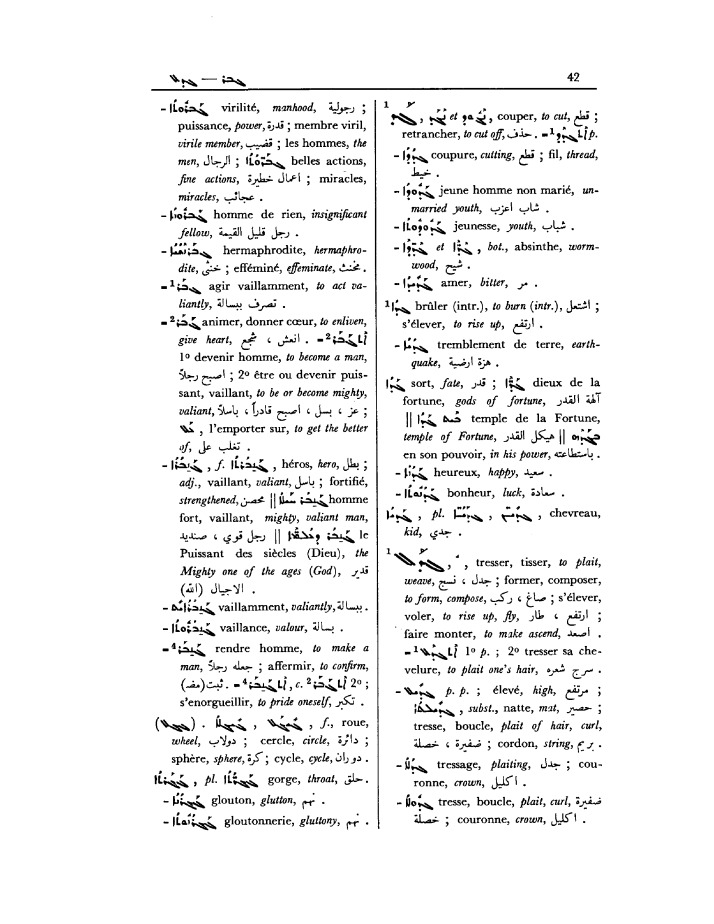 ܓܒܪ — ܓܕܠ
42
- ܓܒܪܘܬܐ virilité, manhood, رجولية ;
puissance, power, قدرة ; membre viril,
virile member, قضيب ; les hommes, the
men, الرجال ; ܓܒܪ̈ܘܬܐ belles actions,
fine actions, أعمال خطيرة ; miracles,
miracles, عجائب .
- ܓܒܪܘܢܐ homme de rien, insignificant
fellow, رجل قليل القيمة .
- ܓܒܪܢܫܝܐ hermaphrodite, hermaphro-
dite, خنثى ; efféminé, effeminate, مخنث .
- ¹ܓܒܪ agir vaillamment, to act va-
liantly, تصرف ببسالة .
- ²ܓܒܪ animer, donner cœur, to enliven,
give heart, انعش ، شجع . - ²ܐܬܓܒܪ
1º devenir homme, to become a man,
اصبح رجلاً ; 2º être ou devenir puis-
sant, vaillant, to be or become mighty,
valiant, عز ، بسل ، اصبح قادراً ، باسلاً ;
ܥܠ , l'emporter sur, to get the better
of, تغلب على .
- ܓܢܒܪܐ , f. ܓܢܒܪܬܐ , héros, hero, بطل ;
adj., vaillant, valiant, باسل ; fortifié,
strengthened, محصن || ܓܢܒܪ ܚܝܠܐ homme
fort, vaillant, mighty, valiant man,
رجل قوي ، صنديد || le
Puissant des siècles (Dieu), the
Mighty one of the ages (God), قدير
الاجيال (الله) .
- ܓܢܒܪܐܝܬ vaillamment, valiantly, ببسالة .
- ܓܢܒܪܘܬܐ vaillance, valour, بسالة .
- ⁴ܓܢܒܪ rendre homme, to make a
man, جعله رجلاً ; affermir, to confirm,
ثبت (مض) . - ⁴ܐܬܓܢܒܪ , c. ²ܐܬܓܒܪ 2º ;
s'enorgueillir, to pride oneself, تكبر .
(ܓܓܠ) . , , f., roue,
wheel, دولاب ; cercle, circle, دائرة ;
sphère, sphere, كرة ; cycle, cycle, دوران .
ܓܓܪܬܐ , pl. ܓܓܪ̈ܬܐ gorge, throat, حلق .
- glouton, glutton, نهم .
- gloutonnerie, gluttony, نهم .
¹ܓܕ , et , couper, to cut, قطع ;
retrancher, to cut off, حذف . - ¹ p.
- ܓܕܕܐ coupure, cutting, قطع ; fil, thread,
خيط .
- ܓܕܘܕܐ jeune homme non marié, un-
married youth, شاب اعزب .
- ܓܕܘܕܘܬܐ jeunesse, youth, شباب .
- et , bot., absinthe, worm-
wood, شيح .
- amer, bitter, مر .
¹ brûler (intr.), to burn (intr.), اشتعل ;
s'élever, to rise up, ارتفع .
- tremblement de terre, earth-
quake, هزة ارضية .
ܓܕܐ sort, fate, قدر ; ܓܕ̈ܐ dieux de la
fortune, gods of fortune, آلهة القدر
|| ܒܝܬ ܓܕܐ temple de la Fortune,
temple of Fortune, هيكل القدر ||
en son pouvoir, in his power, باستطاعته .
- heureux, happy, سعيد .
- bonheur, luck, سعادة .
ܓܕܝܐ , pl. ܓܕ̈ܝܐ , , chevreau,
kid, جدي .
¹ܓܕܠ , , tresser, tisser, to plait,
weave, جدل ، نسج ; former, composer,
to form, compose, صاغ ، ركب ; s'élever,
voler, to rise up, fly, ارتفع ، طار ;
faire monter, to make ascend, اصعد .
- ¹ܐܬܓܕܠ 1º p. ; 2º tresser sa che-
velure, to plait one's hair, سرج شعره .
- ܓܕܝܠܐ p. p. ; élevé, high, مرتفع ;
ܓܕܝܠܬܐ , subst., natte, mat, حصير ;
tresse, boucle, plait of hair, curl,
ضفيرة ، خصلة ; cordon, string, بريم .
- ܓܕܠܐ tressage, plaiting, جدل ; cou-
ronne, crown, اكليل .
- ܓܕܘܠܐ tresse, boucle, plait, curl, ضفيرة
خصلة ; couronne, crown, اكليل .